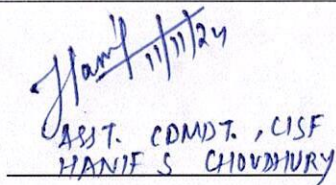 Hanif
11/11/24
ASST. COMDT., CISF
HANIF S CHOUDHURY